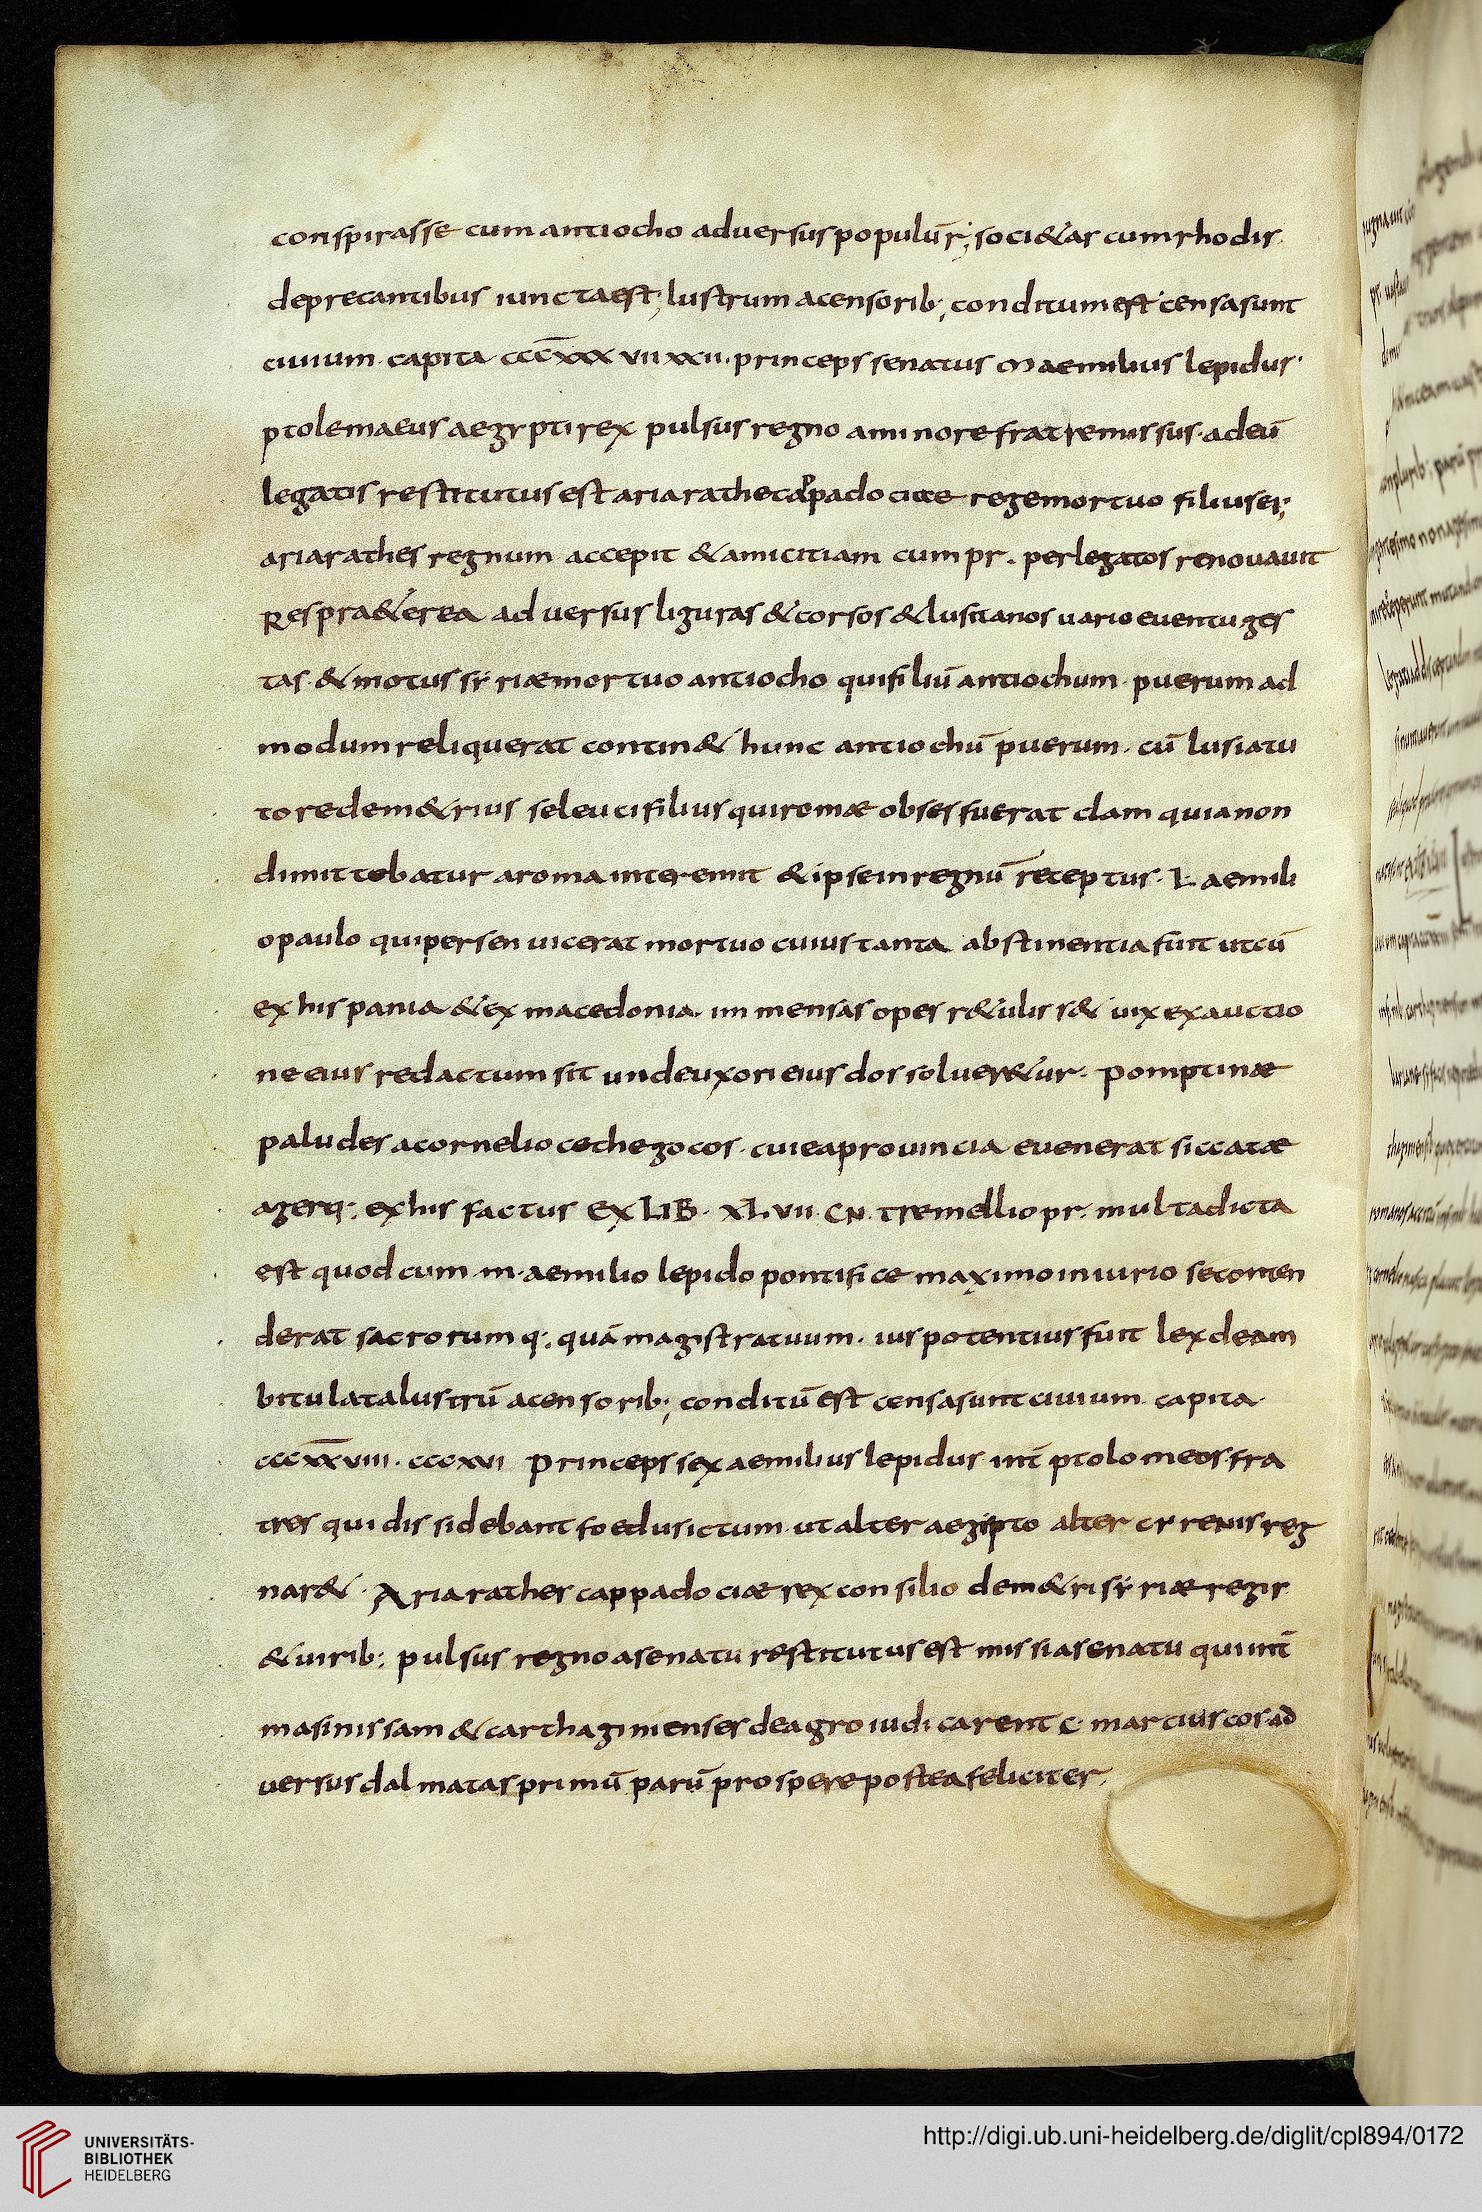 conspirasse cum antiocho aduersus populūr; soci&as cum rhodis
deprecantibus iuncta est; lustrum acensorib; conditum est censa sunt
ciuium capita cccxxxvii xxii. princeps senatus Maemilius lepidus.
ptolemaeus aegypti rex pulsus regno aminore fratre missus adeū
legatis restitutus est ariarathe cappadociae rege mortuo filius ei;
ariarathes regnum accepit & amicitiam cum pr. per legatos renouauit
Res pra&erea aduersus liguras & corsos & lusitanos uario euentu ges
tas & motus syriæ mortuo antiocho qui filiū antiochum puerum ad
modum reliquerat contin& hunc antiochū puerum. cū lusia tu
tore dem&rius seleuci filius qui romæ obses fuerat clam quia non
dimittebatur aroma interemit & ipse in regnū receptus. L. aemili
o paulo qui persen uicerat mortuo cuius tanta abstinentia fuit ut cū
ex hispania & ex macedonia. immensas opes r&ulis s& uix ex auctio
ne eius redactum sit unde uxori eius dos soluer&ur. Pomptinæ
paludes acornelio cethego cos. cui ea prouincia euenerat siccatæ
agerq; ex his factus EX LIB. XLVII. CN. tremellio pr. multa dicta
est quod cum m. aemilio lepido pontifice maximo iniurio se conten
derat sacrorum q; quā magistratuum. ius potentius fuit lex de am
bitu lata lustrū acensorib; conditū est censa sunt ciuium capita
cccxxviii. cccxvi Princeps sex aemilius lepidus int̄ ptolomeos fra
tres qui dissidebant foedus ictum ut alter aegipto alter cyrenis reg
nar&. Ariarathes cappadociæ rex consilio dem&ri syriæ regis
& uirib; pulsus regno asenatu restitutus est missi asenatu qui int̄
masinissam & carthaginienses de agro iudicarent C marcius cos. ad
uersus dalmatas primū parū prospere postea feliciter.
UNIVERSITÄTS-
BIBLIOTHEK
HEIDELBERG
http://digi.ub.uni-heidelberg.de/diglit/cpl894/0172